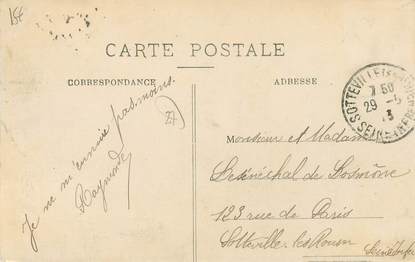 15€
CARTE POSTALE
CORRESPONDANCE
ADRESSE
Je ne m'ennuie pas moins.
Raymonde
27
SOTTEVILLE-LES-ROUEN
7 50
29 -5
13
SEINE-INFRE
Monsieur et Madame
Lesénéchal de Losmône
123 rue de Paris
Sotteville-les-Rouen
Seine Infre